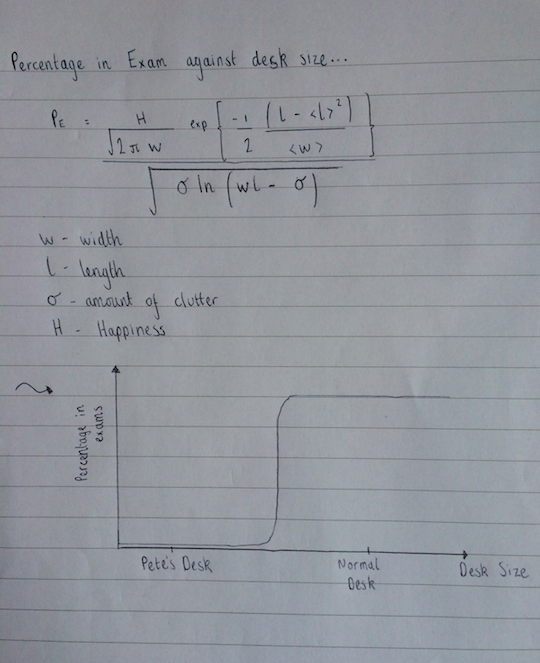 Percentage in Exam against desk size...
P_E = H / √2π w exp [ -1/2 (l - <l>²) / <w> ]
√ σ ln (wl - σ)
w - width
l - length
σ - amount of clutter
H - Happiness
Percentage in
exams
Pete's Desk
Normal
Desk
Desk Size